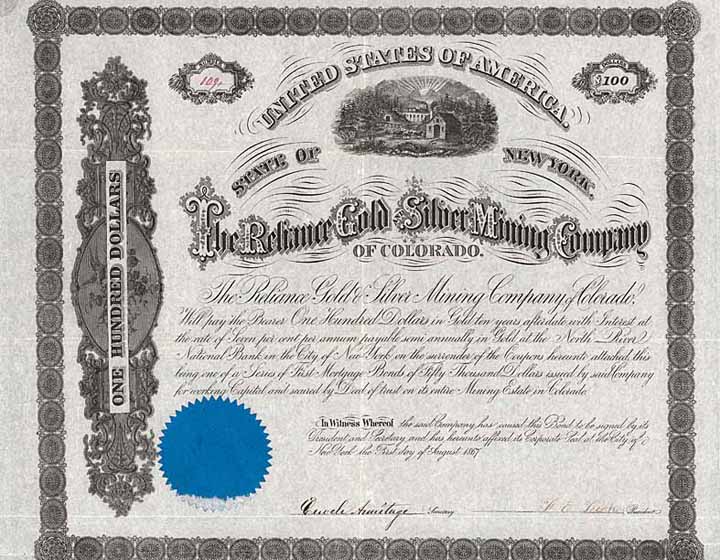 109.
$100
UNITED STATES OF AMERICA.
STATE OF NEW YORK.
The Reliance Gold and Silver Mining Company
OF COLORADO.
ONE HUNDRED DOLLARS
The Reliance Gold & Silver Mining Company of Colorado,
Will pay the Bearer One Hundred Dollars in Gold ten years after date with Interest at
the rate of Seven per cent per annum payable semi annually in Gold at the North River
National Bank in the City of New York on the surrender of the Coupons hereunto attached, this
being one of a Series of First Mortgage Bonds of Fifty Thousand Dollars issued by said Company
for working Capital and secured by Deed of trust on its entire Mining Estate in Colorado
In Witness Whereof the said Company has caused this Bond to be signed by its
President and Secretary and has hereunto affixed its Corporate Seal at the City of
New York the First day of August 1867
Enoch Armitage Secretary President